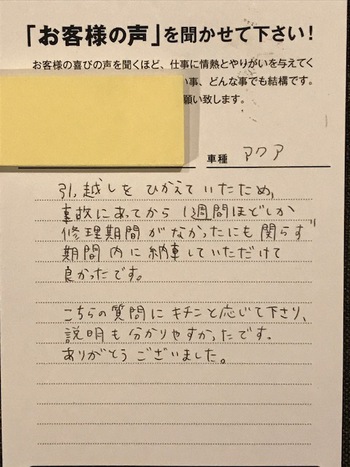 「お客様の声」を聞かせて下さい！
お客様の喜びの声を聞くほど、仕事に情熱とやりがいを与えてく
い事、どんな事でも結構です。
願い致します。
車種 アクア
引越しをひかえていたため、
事故にあってから1週間ほどしか
修理期間がなかったにも関らず
期間内に納車していただけて
良かったです。
こちらの質問にキチンと応じて下さり、
説明も分かりやすかったです。
ありがとうございました。